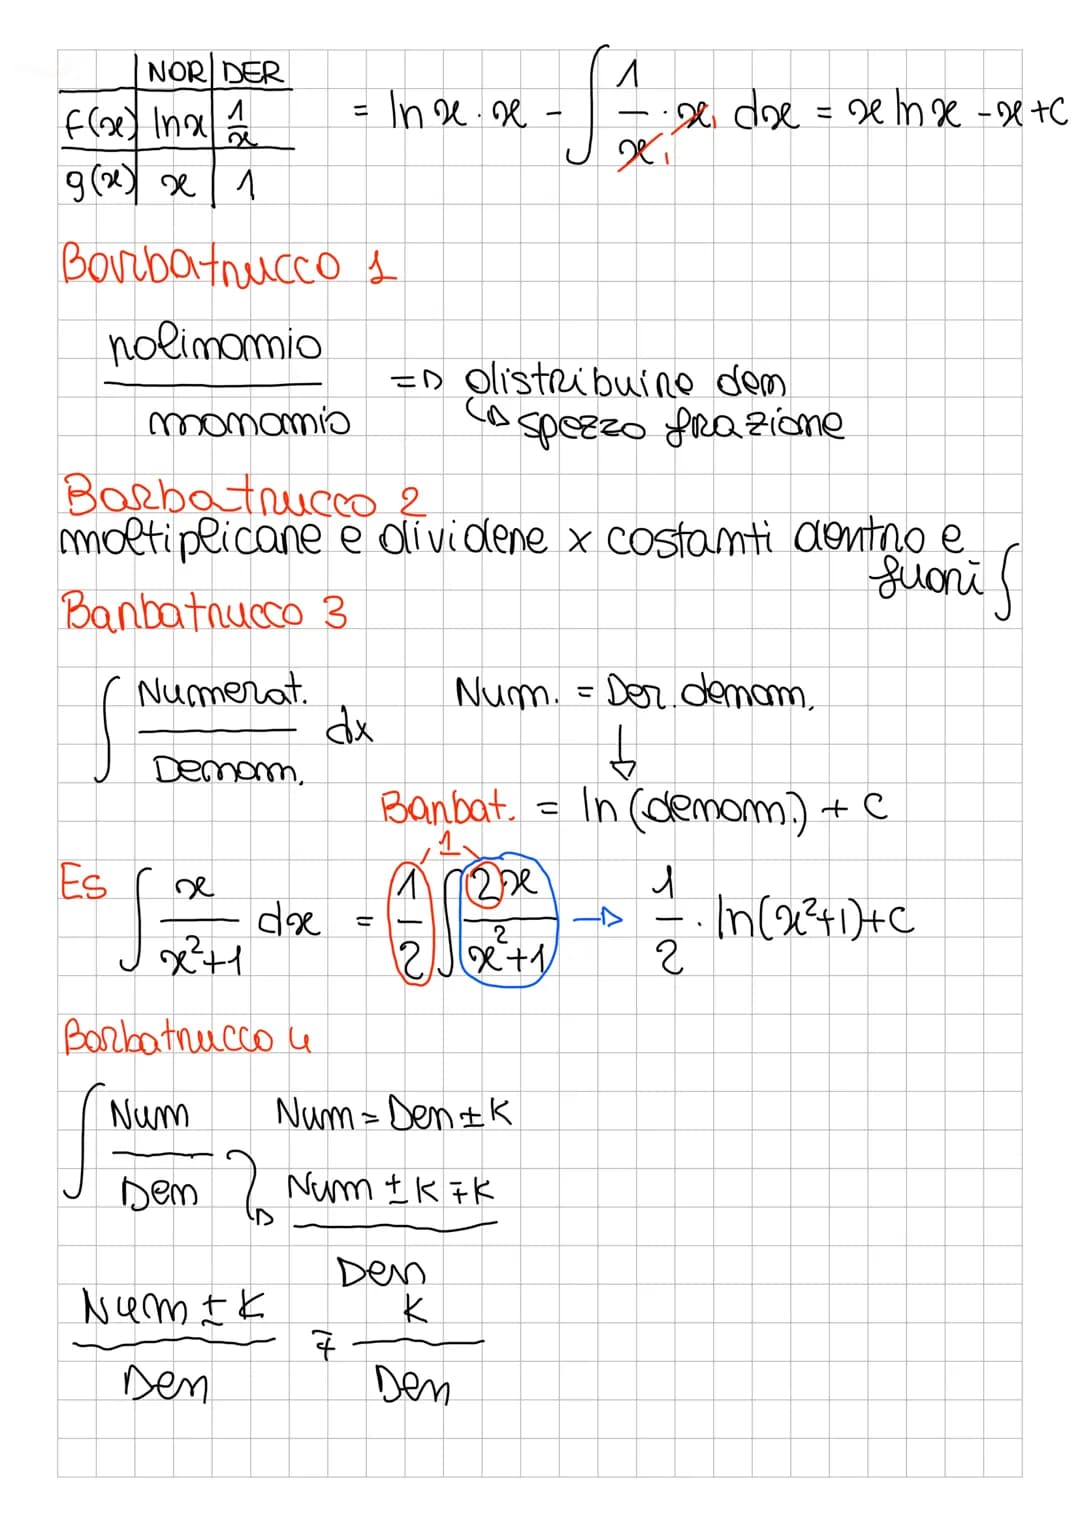 NOR DER
f(x) lnx 1/x
g(x) x 1
= ln x · x - ∫ 1/x · x dx = x ln x - x + C
Barbatrucco 1
polinomio / monomio => distribuire den
↳ spezzo frazione
Barbatrucco 2
moltiplicare e dividere x costanti dentro e
fuori ∫
Barbatrucco 3
∫ Numerat. / Denom. dx Num. = Der. denom.
↓
Barbat. = ln (denom.) + C
1
Es ∫ x / x²+1 dx = 1/2 ∫ 2x / x²+1 → 1/2 · ln(x²+1)+C
Barbatrucco 4
∫ Num / Den Num = Den ± K
Num ± K ∓ K / Den
Num ± K / Den ∓ K / Den